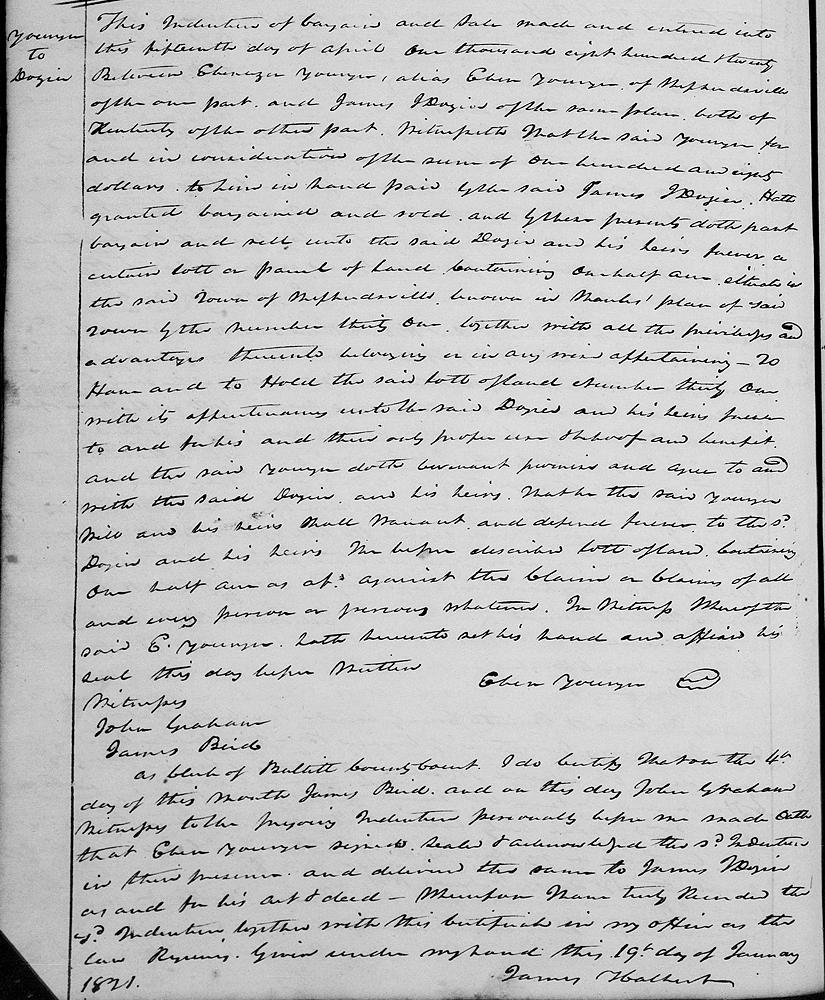 Younger
to
Dozier
This Indenture of bargain and Sale made and entered into
this fifteenth day of April One thousand eight hundred & twenty
Between Ebenezer Younger, alias Eben Younger, of Shepherdsville
of the one part. and James I Dozier of the same place. both of
Kentucky of the other part. Witnesseth that the said Younger for
and in consideration of the sum of One hundred and eighty
dollars. to him in hand paid by the said James I Dozier. Hath
granted bargained and sold. and by these presents doth
bargain and sell unto the said Dozier and his heirs forever a
certain lott or parcel of land Containing One half acre. situate in
the said Town of Shepherdsville. known in plan of said
Town by the number thirty One. together with all the priviledges and
advantages thereunto belonging or in any wise appertaining – To
Have and to Hold the said lott of land Number thirty One
with its appurtenances unto the said Dozier and his heirs forever
to and for his and their only proper use & behoof and benefit.
and the said Younger doth Covenant promise and agree to and
with the said Dozier. and his heirs. that he the said Younger
Will and his heirs Shall Warrant. and defend forever. to the sd.
Dozier and his heirs The before described lott of land. Containing
One half acre as afsd. against the Claim or Claims of all
and every person or persons whatever. In Witness Whereof the
said E. Younger. hath hereunto set his hand and affixed his
seal this day before Written
Eben Younger
Witness
John Graham
James Bird
as Clerk of Bullitt County Court. I do Certify that on the 4th
day of this month James Bird. and on this day John Graham
Witnesses to the Indenture personally before me made Oath
that Eben Younger signed. Sealed & acknowledged the sd. Indenture
in their presence. and delivered the same to James I Dozier
as and for his act & deed – Whereupon I have truly Recorded the
sd. Indenture together with this Certificate in my office as the
law Requires. Given under my hand this 19th day of January
1821.
James Halbert